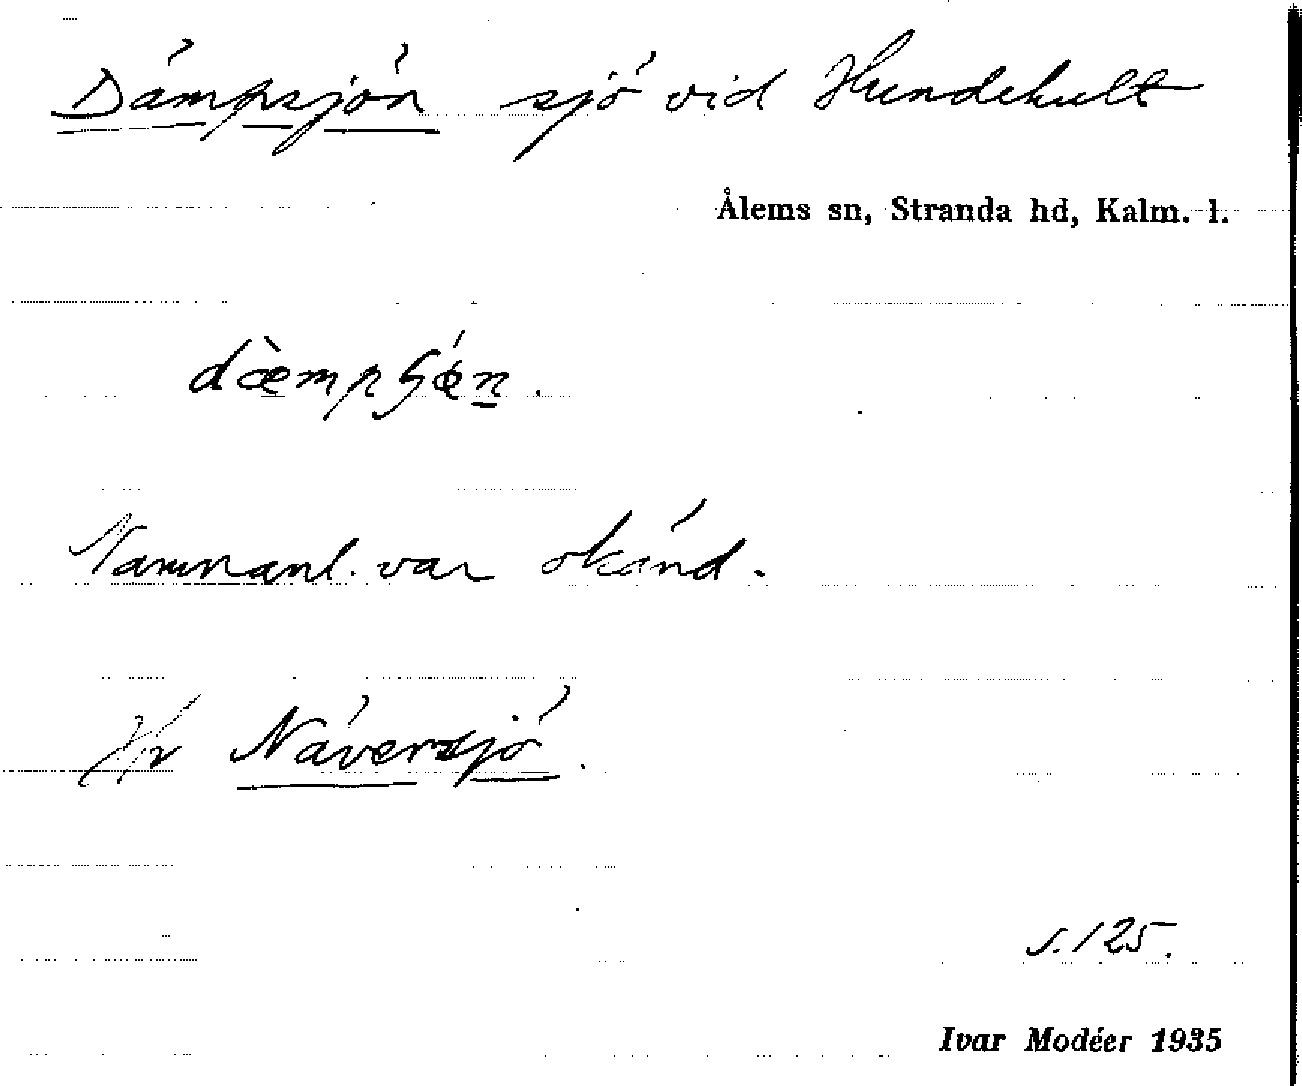 Dämpsjön sjö vid Hundekult
Ålems sn, Stranda hd, Kalm. l.
Namnanl. var okänd.
Jfr Näversjö.
s. 125.
Ivar Modéer 1935